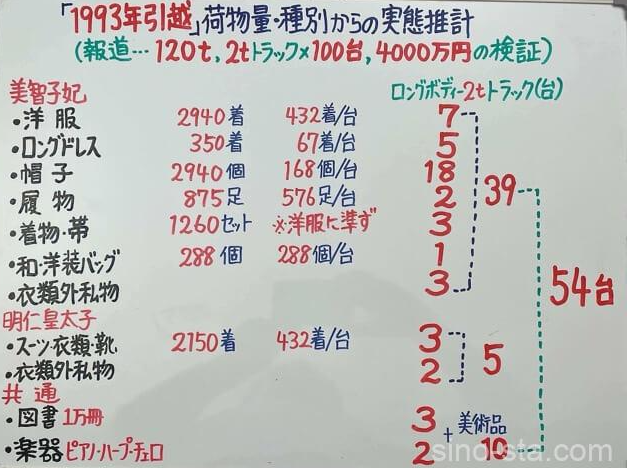 「1993年引越」荷物量・種別からの実態推計
(報道… 120t, 2tトラック×100台, 4000万円の検証)
美智子妃 ロングボディー2tトラック(台)
・洋服 2940着 432着/台 7
・ロングドレス 350着 67着/台 5
・帽子 2940個 168個/台 18
・履物 875足 576足/台 2 39
・着物・帯 1260セット ※洋服に準ず 3
・和・洋装バッグ 288個 288個/台 1
・衣類外私物 3 54台
明仁皇太子
・スーツ・衣類・靴 2150着 432着/台 3
・衣類外私物 2 5
共通
・図書 1万冊 3 + 美術品
・楽器 ピアノ・ハープ・チェロ 2 10
sino-sta.com